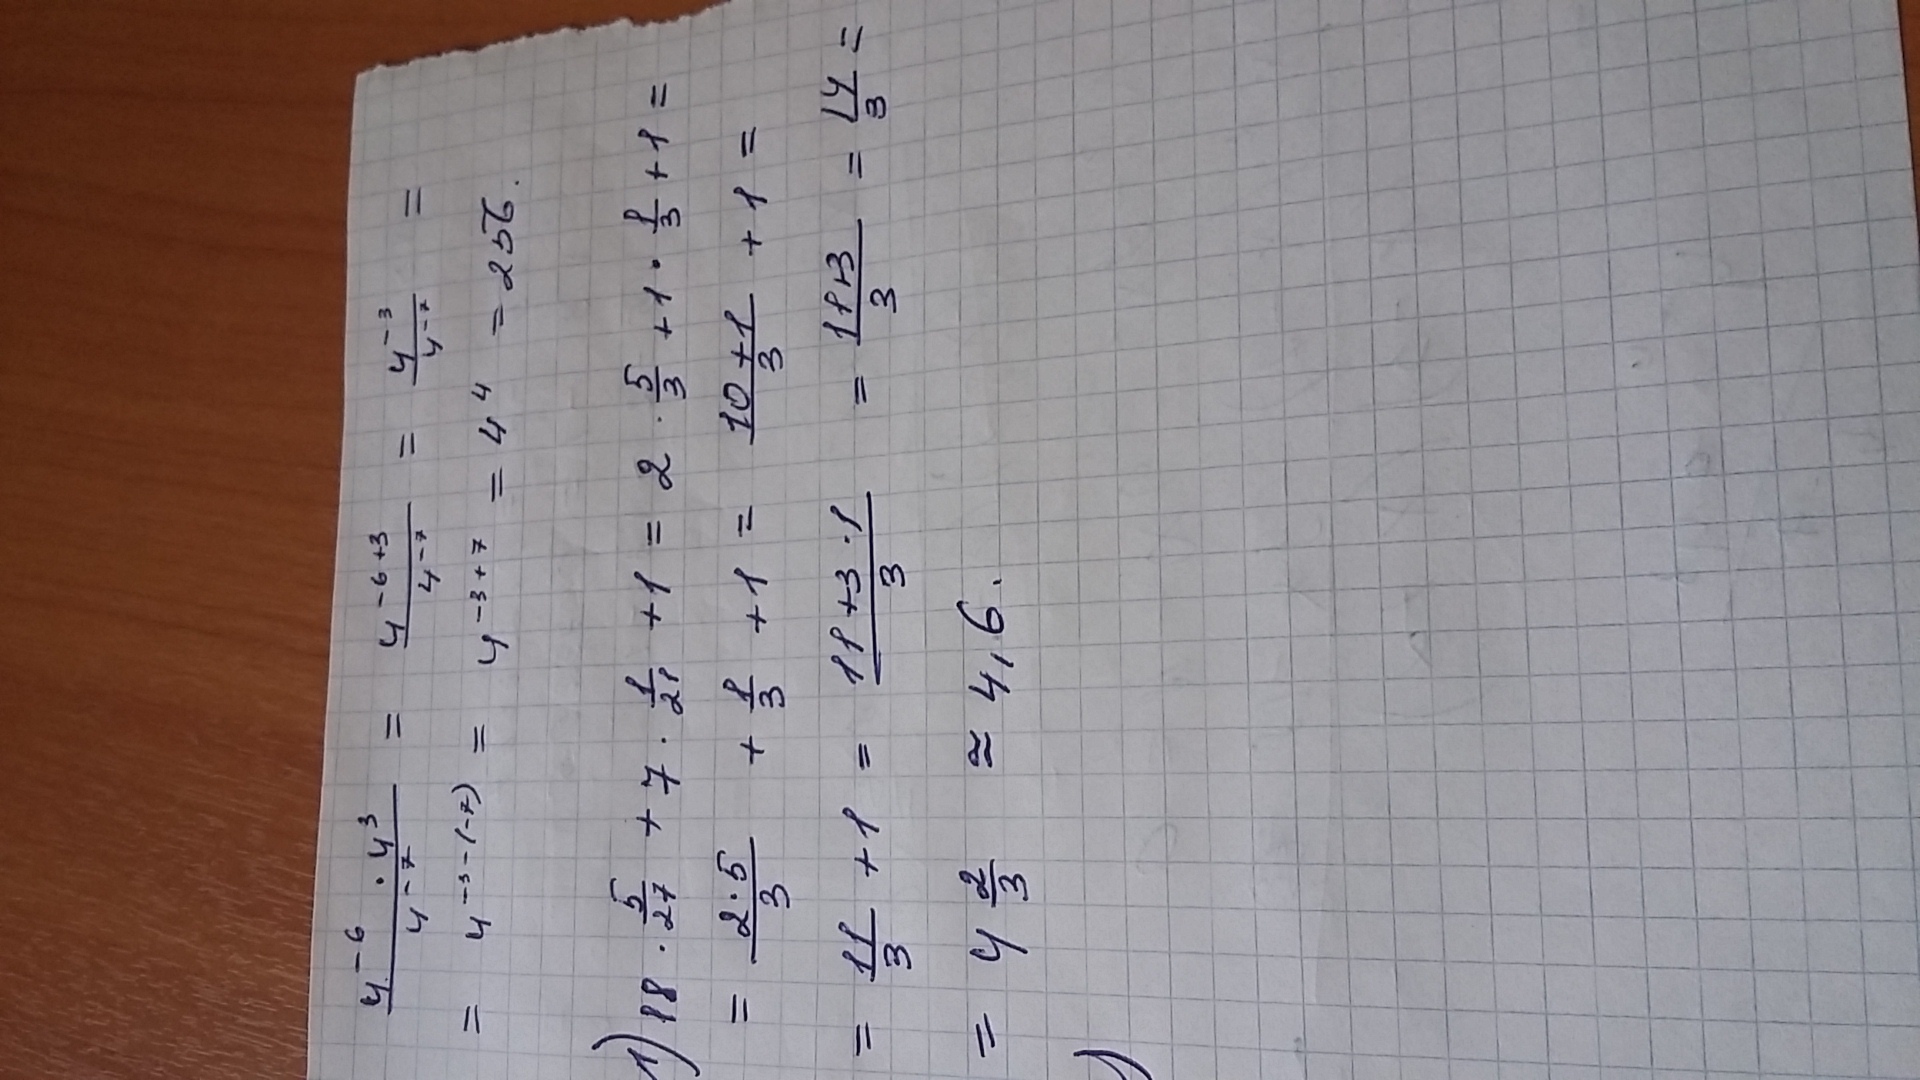 4⁻⁶ · 4³ / 4⁻⁷ = 4⁻⁶⁺³ / 4⁻⁷ = 4⁻³ / 4⁻⁷ =
= 4⁻³⁻⁽⁻⁷⁾ = 4⁻³⁺⁷ = 4⁴ = 256.
1) 18 · 5/27 + 7 · 1/21 + 1 = 2 · 5/3 + 1 · 1/3 + 1 =
= 2·5/3 + 1/3 + 1 = 10+1/3 + 1 =
= 11/3 + 1 = 11+3·1/3 = 11+3/3 = 14/3 =
= 4 2/3 ≈ 4,6.
)